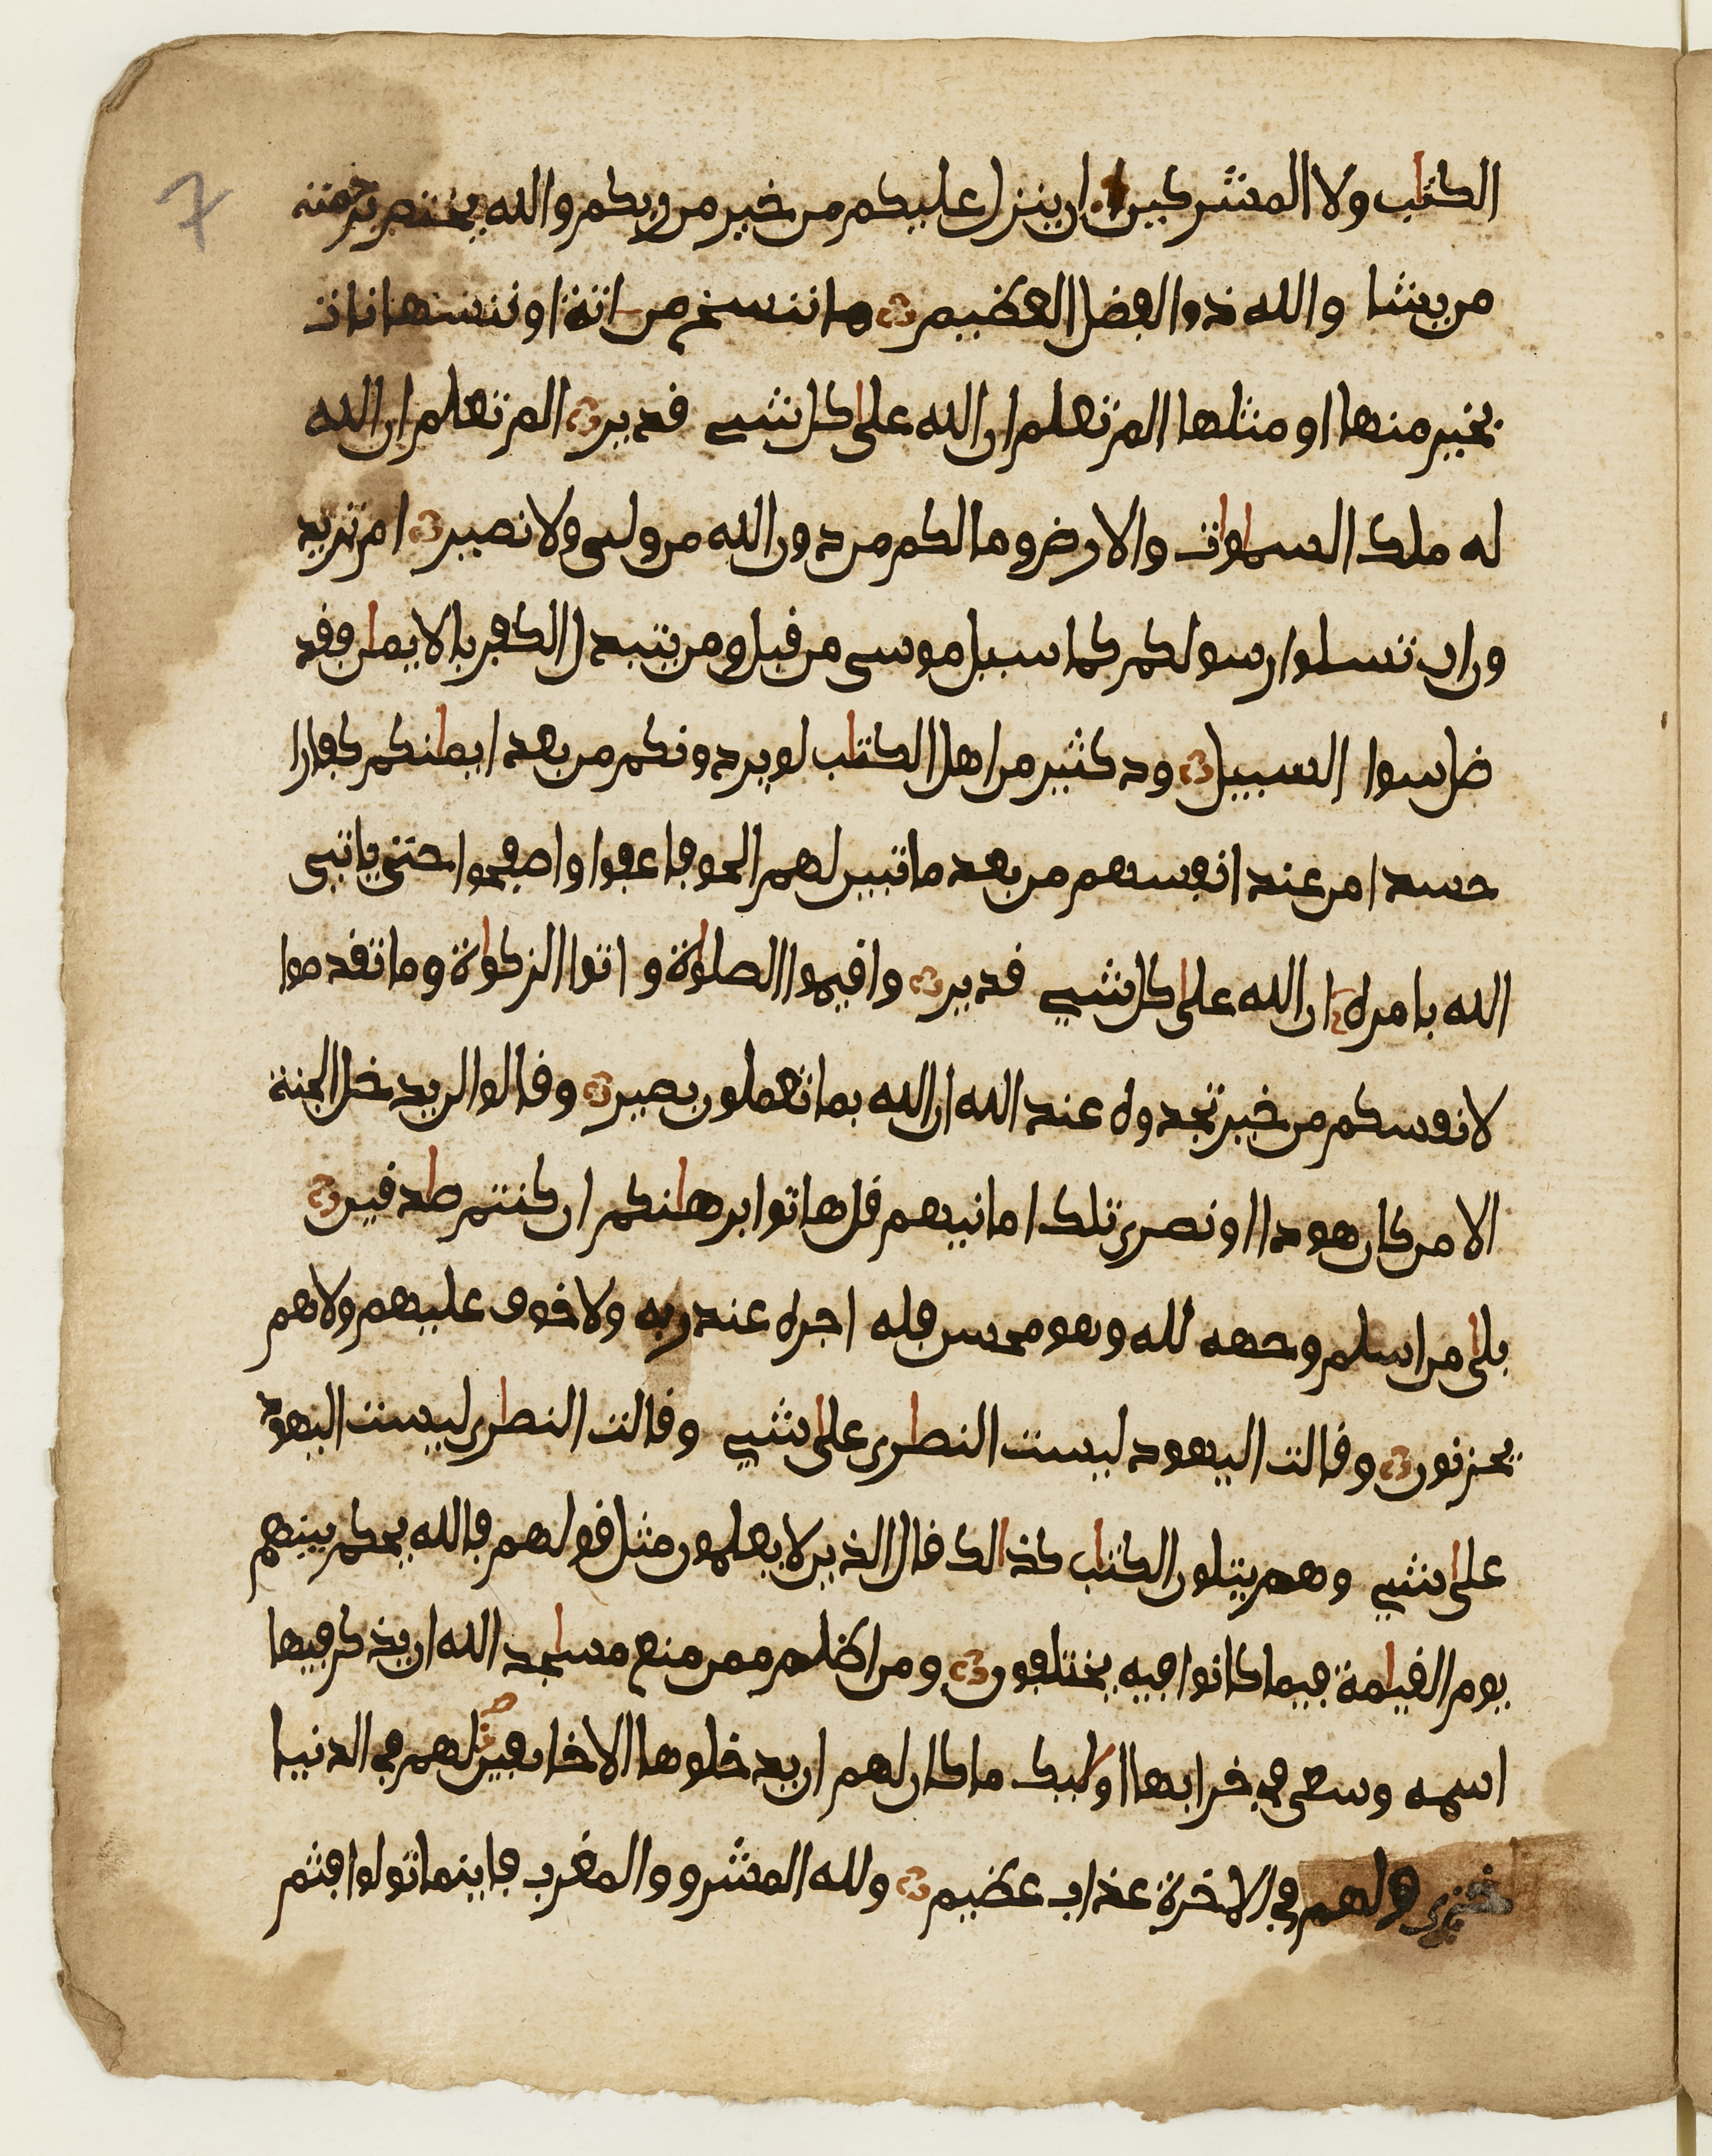 7
الكتٰب ولا المشركين ان ينزل عليكم من خير من ربكم والله يختص برحمته
من يشا والله ذو الفضل العظيم ما ننسخ من اية او ننسها نات
بخير منها او مثلها الم تعلم ان الله على كل شيى قدير الم تعلم ان الله
له ملك السمٰوٰت والارض وما لكم من دون الله من ولى ولا نصير ام تريد
ون ان تسلوا رسولكم كما سيل موسى من قبل ومن يتبدل الكفر بالايمٰن فقد
ضل سوا السبيل ود كثير من اهل الكتٰب لو يردونكم من بعد ايمٰنكم كفارا
حسدا من عند انفسهم من بعد ما تبين لهم الحق فاعفوا واصفحوا حتى ياتى
الله بامره ان الله على كل شيى قدير واقيموا الصلوٰة و اتوا الزكوٰة وما تقدموا
لانفسكم من خير تجدوه عند الله ان الله بما تعملون بصير وقالوا لن يدخل الجنة
الا من كان هودا او نصرى تلك امانيهم قل هاتوا برهٰنكم ان كنتم صٰدقين
بلى من اسلم وجهه لله وهو محسن فله اجره عند ربه ولا خوف عليهم ولا هم
يحزنون وقالت اليهود ليست النصٰرى على شيى وقالت النصٰرى ليست اليهود
على شيى وهم يتلون الكتٰب كذالك قال الذين لا يعلمون مثل قولهم فالله يحكم بينهم
يوم القيٰمة فيما كانوا فيه يختلفون ومن اظلم ممن منع مسٰجد الله ان يذكر فيها
اسمه وسعى فى خرابها اوليك ما كان لهم ان يدخلوها الا خايفين لهم فى الدنيا
خزى ولهم فى الاخرة عذاب عظيم ولله المشرق والمغرب فاينما تولوا فثم